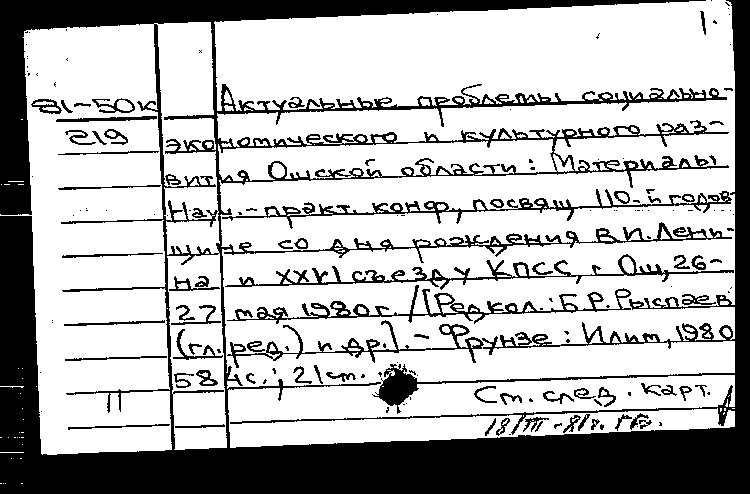 1.
81-50к Актуальные проблемы социально-
219 экономического и культурного раз-
вития Ошской области: Материалы
Науч.-практ. конф., посвящ. 110-й годов-
щине со дня рождения В.И. Лени-
на и XXVI съезду КПСС, г. Ош, 26-
27 мая 1980 г. / [Редкол.: Б.Р. Рыспаев
(гл. ред.) и др.]. - Фрунзе: Илим, 1980
584 с.; 21 см.
11 См. след. карт.
18/III-81г.